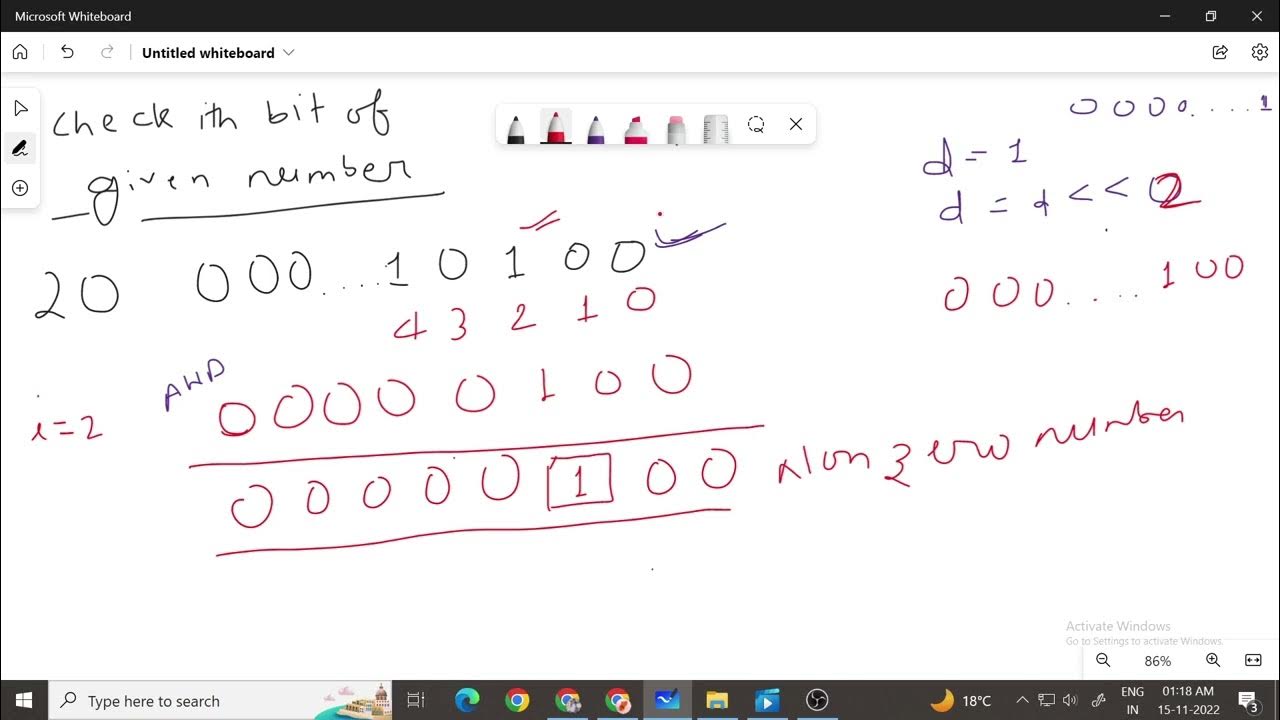 Microsoft Whiteboard
Untitled whiteboard
check ith bit of
given number
0000....1
d = 1
d = d << 2
20 000....10100
4 3 2 1 0
000....100
AND
i=2
00000100
00000100 Non zero number
Activate Windows
Go to Settings to activate Windows.
86%
Type here to search
18°C
ENG
IN
01:18 AM
15-11-2022
3